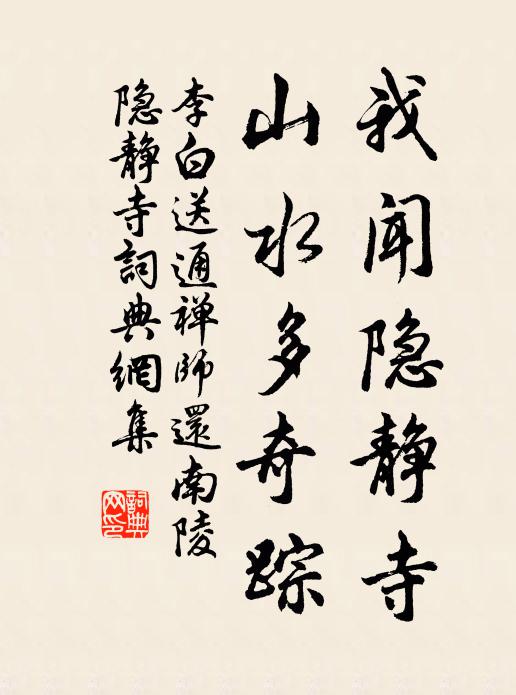 我闻隐静寺
山水多奇踪
李白送通禅师還南陵
隐静寺詞典網集
詞典网印